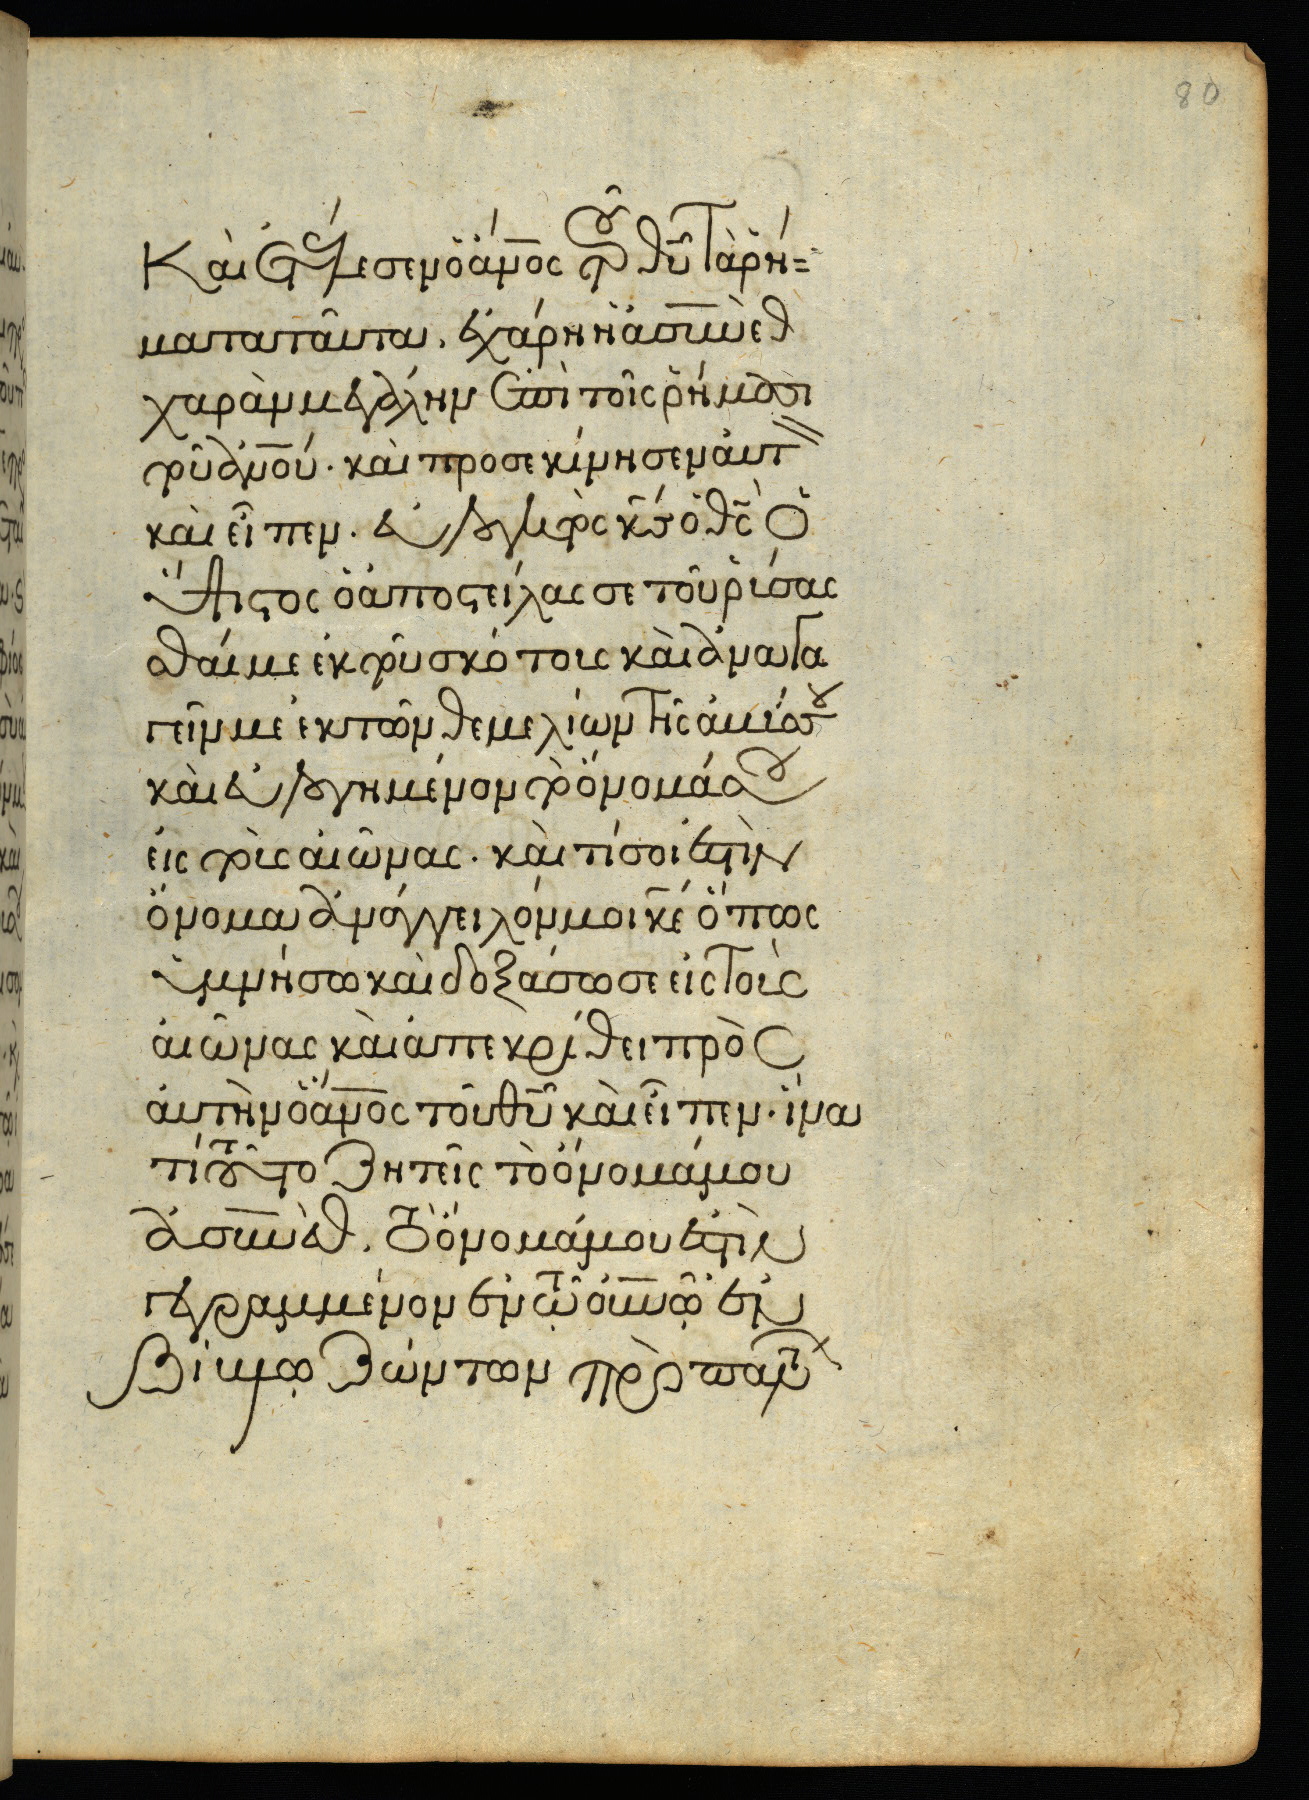 80
Καὶ ἐτέλεσεν ὁ ἄνος τοῦ θῦ τὰ ῥή=
ματα ταῦτα. ἐχάρη ἡ ἀσυνὲθ
χαρὰν μεγάλην ἐπὶ τοῖς ῥήμασι
τοῦ ἀνοῦ. καὶ προσεκύνησεν αὐτ
καὶ εἶπεν. εὐλογητὸς κς ὁ θς ὁ
ὕψιστος ὁ ἀποστείλας σε τοῦ ῥύσασ
θαί με ἐκ τοῦ σκότους καὶ ἀναγα
γεῖν με ἐκ τῶν θεμελίων τῆς ἀβύσσου
καὶ εὐλογημένον τὸ ὄνομά σου
εἰς τοὺς αἰῶνας. καὶ τί σοι ἐστὶν
ὄνομα ἀνάγγειλόν μοι κέ ὅπως
ὑμνήσω καὶ δοξάσω σε εἰς τοὺς
αἰῶνας καὶ ἀπεκρίθει πρὸς
αὐτὴν ὁ ἄνος τοῦ θῦ καὶ εἶπεν. ἵνα
τί τοῦτο ζητεῖς τὸ ὄνομά μου
ἀσυνὲθ. τὸ ὄνομά μου ἐστὶν
γεγραμμένον ἐν τῷ οὐνῷ ἐν
βίβλῳ ζώντων πρὸ παντ